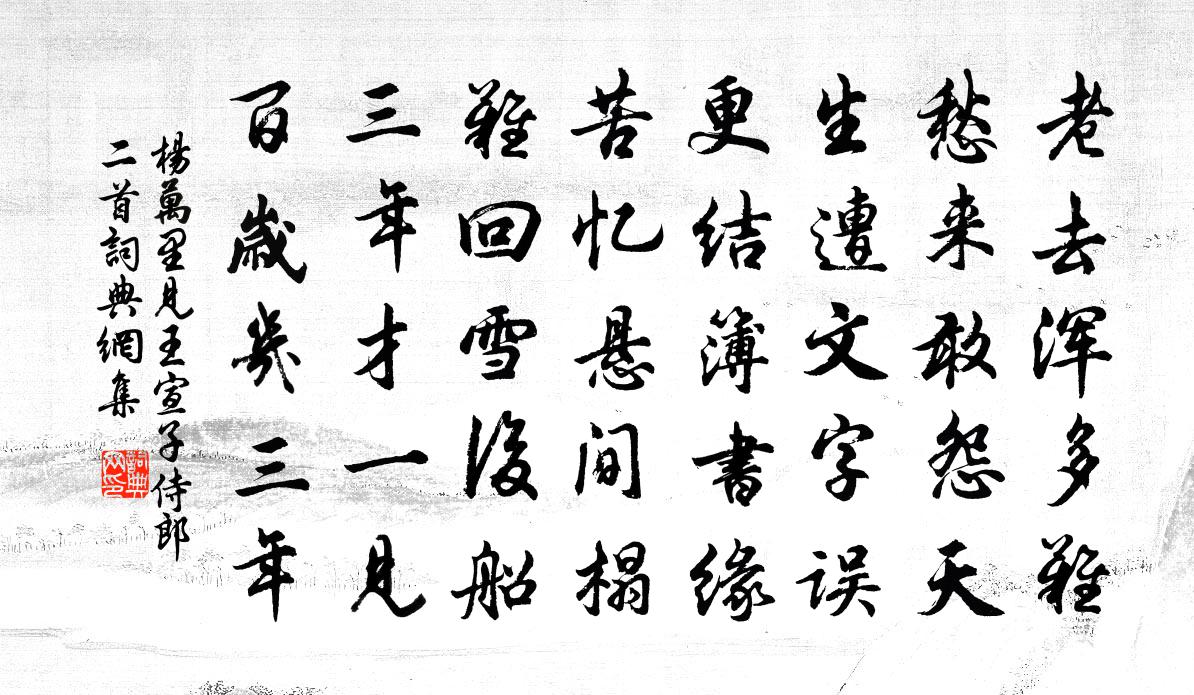 老去浑多难
愁来敢怨天
生遭文字误
更结簿书缘
苦忆悬间榻
难回雪後船
三年才一見
百歲幾三年
楊萬里見王宣子侍郎
二首詞典網集
詞典
网印